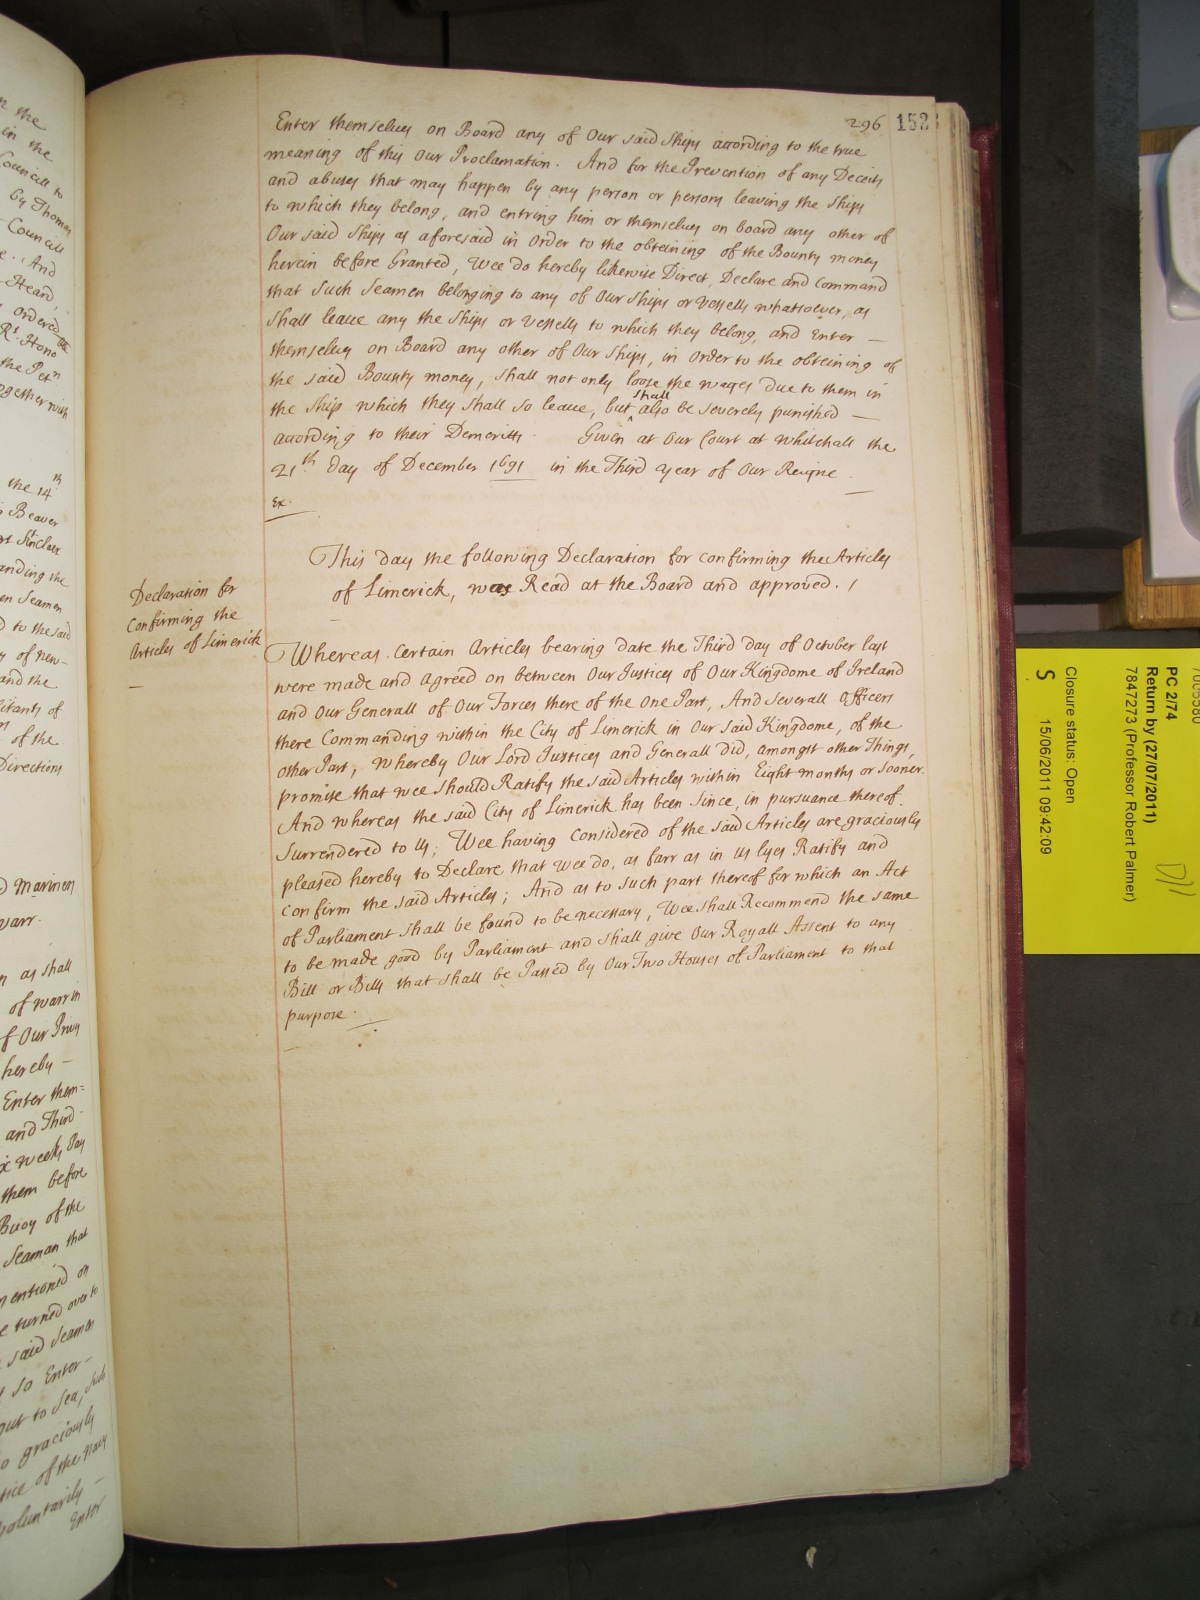 n the
in the
Councill to
by Thomas
Councill
e. And
Heard,
Ordered
Rt. Hono
the Petn
ogether with
the 14th
Beaver
anding the
en Seamen
d to the said
y of new-
and the
of the
Directions
d Mariners
warr.
n as shall
of warr in
f Our Privy
hereby —
Enter them=
and Third
weeks Pay
them before
Buoy of the
Seaman that
mentioned on
e turned over to
said Seamen
so Enter-
out to Sea, such
o graciously
of the Navy
voluntarily —
Enter
296 152
Enter themselves on Board any of Our said Ships according to the true
meaning of this Our Proclamation. And for the Prevention of any Deceits
and abuses that may happen by any person or persons leaving the Ships
to which they belong, and entring him or themselves on board any other of
Our said Ships as aforesaid in Order to the obteining of the Bounty money
herein before Granted, Wee do hereby likewise Direct, Declare and Command
that Such Seamen belonging to any of Our Ships or Vessells whatsoever, as
Shall leave any the Ships or Vessells to which they belong, and Enter —
themselves on Board any other of Our Ships, in Order to the obteining of
the said Bounty money, shall not only loose the wages due to them in
the Ship which they shall so leave, but shall also be severely punished —
according to their Demeritts. Given at Our Court at Whitehall the
21th Day of December 1691 in the Third year of Our Reigne.
Ex.
This day the following Declaration for confirming the Articles
of Limerick, was Read at the Board and approved. /
Declaration for
Confirming the
Articles of Limerick
Whereas Certain Articles bearing date the Third day of October last
were made and agreed on between Our Justices of Our Kingdome of Ireland
and Our Generall of Our Forces there of the One Part, And Severall Officers
there Commanding within the City of Limerick in Our said Kingdome, of the
other Part, whereby Our Lord Justices and Generall Did, amongst other Things,
promise that wee should Ratify the said Articles within Eight months or sooner.
And whereas the said City of Limerick has been since, in pursuance thereof.
Surrendered to Us; Wee having Considered of the said Articles are graciously
pleased hereby to Declare that Wee do, as farr as in us lyes Ratify and
Confirm the said Articles; And as to such part thereof for which an Act
of Parliament shall be found to be necessary, Wee shall Recommend the same
to be made good by Parliament and shall give Our Royall Assent to any
Bill or Bills that shall be Passed by Our Two Houses of Parliament to that
purpose.
PC 2/74
Return by (27/07/2011)
7847273 (Professor Robert Palmer)
Closure status: Open
S 15/06/2011 09:42:09